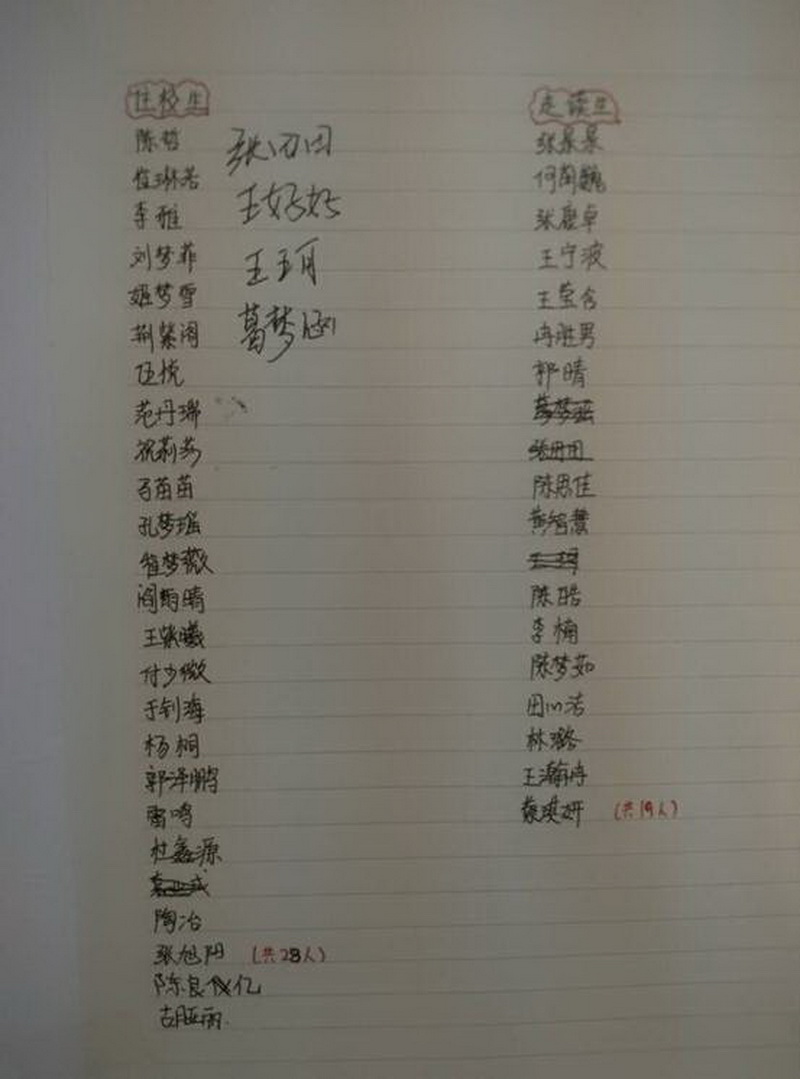 住校生
陈哲
崔琳若
李雅
刘梦菲
姬梦雪
荆紫阁
伍悦
范丹瑞
祝莉莎
马苗苗
孔梦瑶
崔梦薇
阎雨晴
王紫曦
付少微
于钊海
杨桐
郭泽鹏
雷鸣
杜鑫源
陶冶
张旭阳 (共28人)
陈良仪亿
古丽
张丹田
王好好
王玥
葛梦涵
走读生
张景景
何蔺巍
张赓卓
王宁波
王莹含
冉胜男
郭晴
张丹田
陈思佳
黄智慧
王玥
陈皓
李楠
陈梦茹
田心洁
林璐
王瀚冉
蔡琪妍 (共19人)